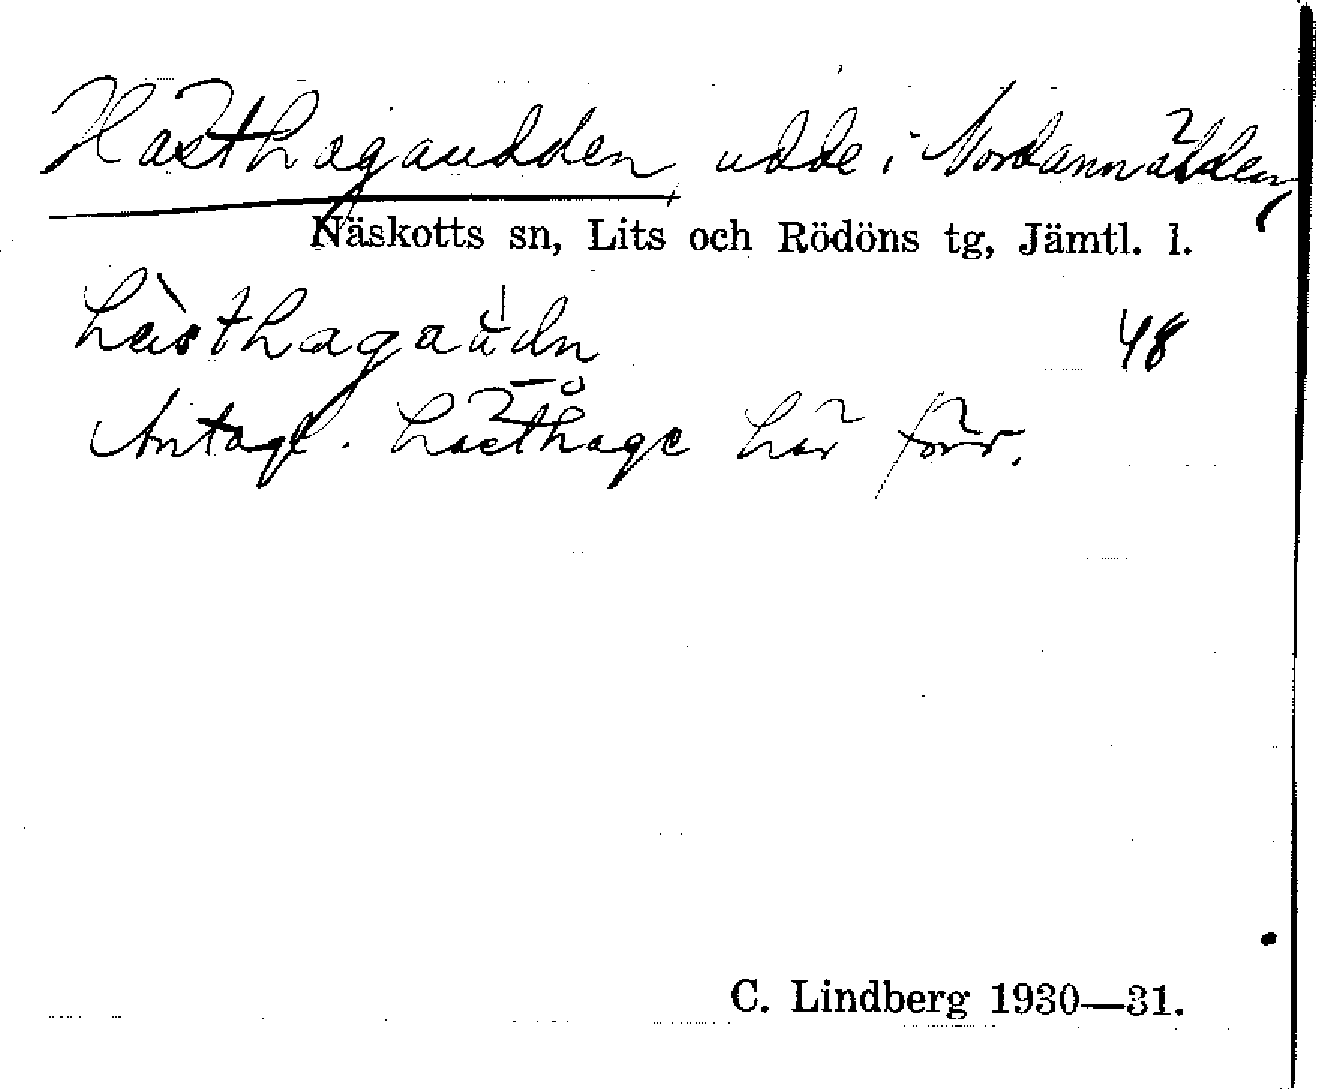 Hästhagaudden, udde i Nordannälden,
Näskotts sn, Lits och Rödöns tg, Jämtl. l.
hästhagaùdn 48
Antagl. hästhage här förr.
C. Lindberg 1930—31.